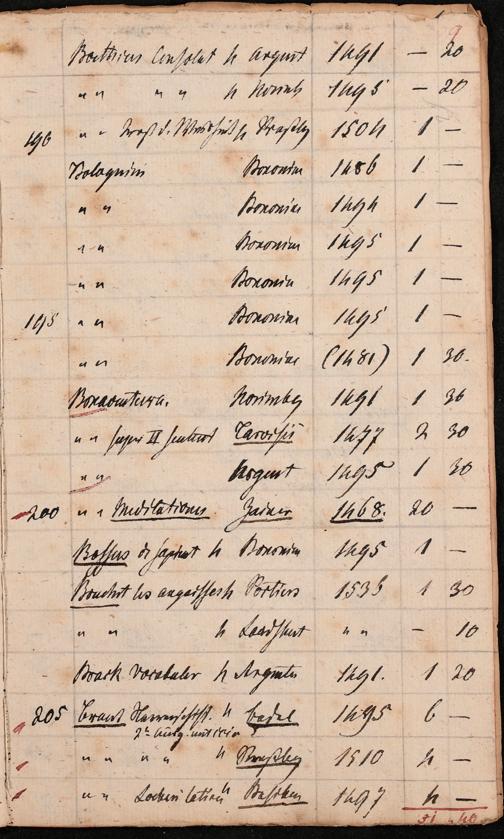 9
Boethius Consolat h Argent 1491 — 20
" " " " h Norimb 1495 — 20
190 " " h Straßbg 1504 1 —
Bolognini Bononiae 1486 1 —
" " Bononiae 1494 1 —
" " Bononiae 1495 1 —
" " Bononia 1495 1 —
195 " " Bononiae 1495 1 —
" " Bononiae (1481) 1 30.
Bonaventura. Norimbg 1491 1 36
" " super II sentent Tarvisii 1477 2 30
" " Argent 1495 1 30
200 " " Meditationes Zainer 1468. 20 —
Bossus de sapient h Bononiae 1495 1 —
Bouchet les angoisses h Poitiers 1536 1 30
" " h Landshut " " — 10
Brack Vocabular h Argent 1491. 1 20
205 Brant Narrenschiff. " Basel 1495 6 —
" " " " Straßbg 1510 4 —
" " Locher latein " Basileae 1497 4 —
51 40